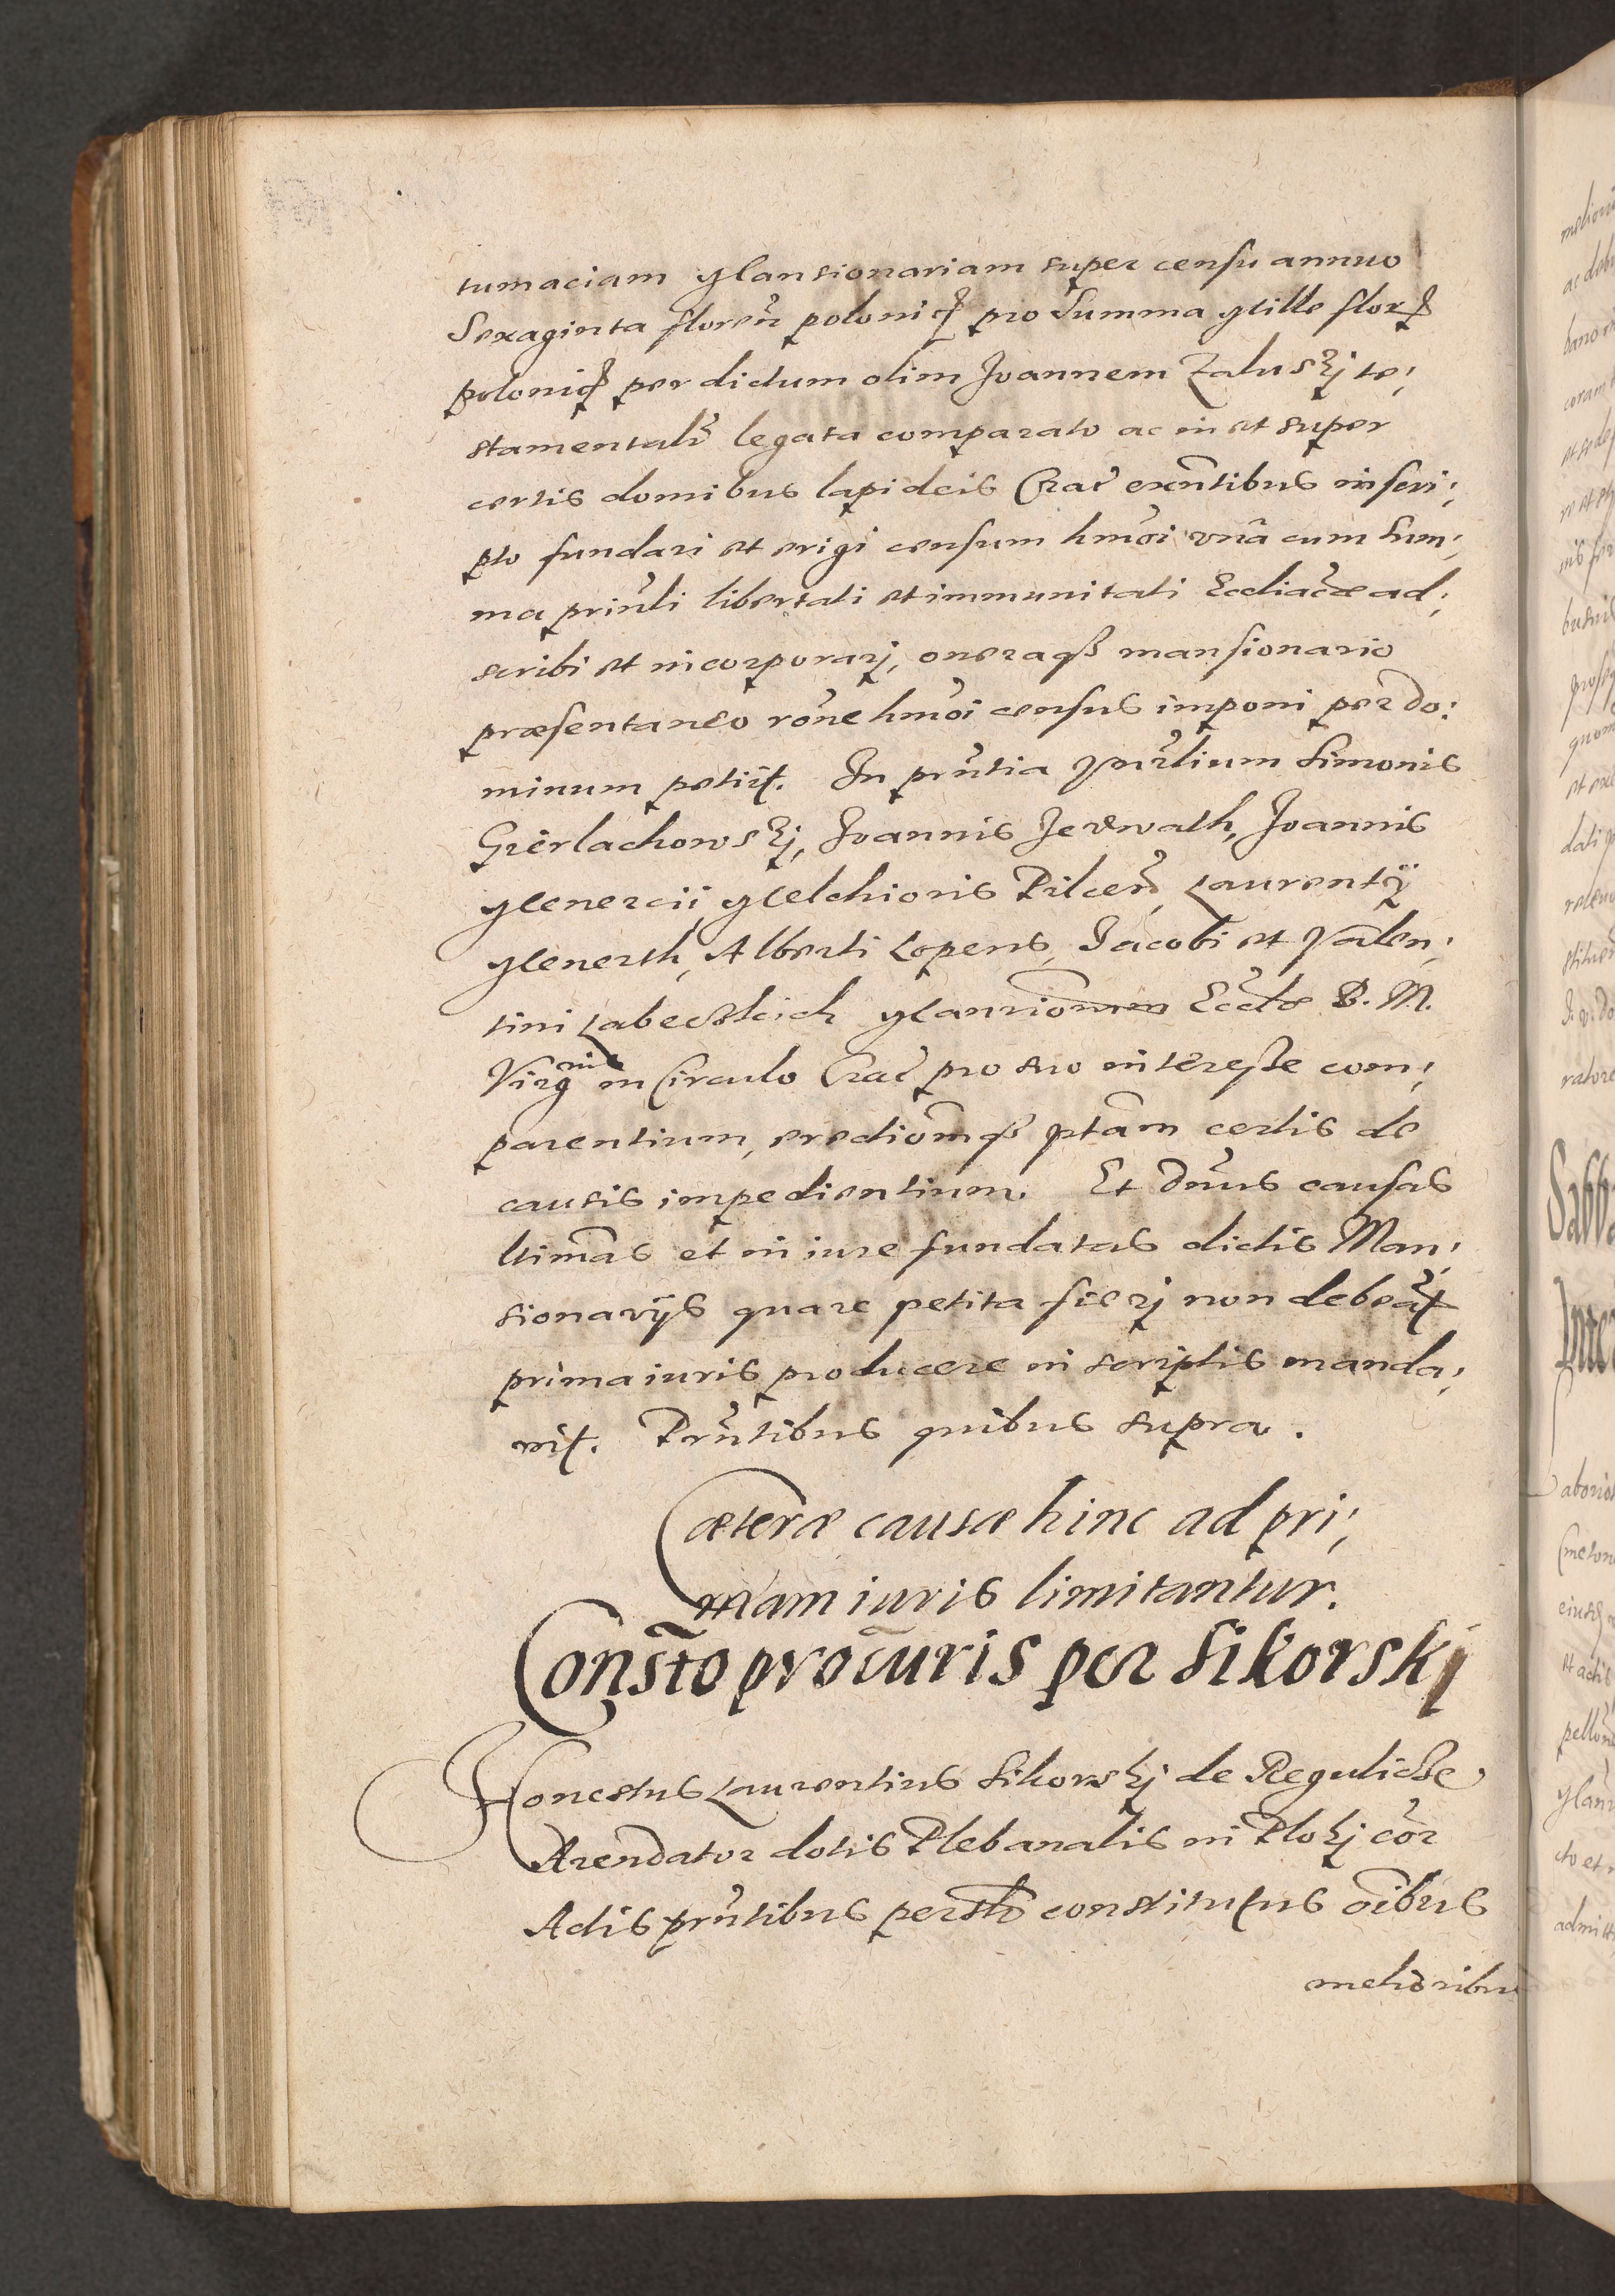 tumaciam Mansionariam super censu annuo
Sexaginta floreñ polonicꝭ pro Summa Mille florꝭ
polonicꝭ per dictum olim Joannem Zaluskj te;
stamentalr̃ legata comparato ac in et super
certis domibus lapideis Crac̃ exñtibus inscri;
pto fundari et erigi censum hmõi vnâ cum Sum;
ma prin̄li libertati et immunitati Eccliacæ ad;
scribi et incorporarj, oneraqꝫ mansionario
præsentaneo rõne hmõi census imponi per do:
minum petijt. In prñtia Vnr̃lium Simonis
Gierlachowskj, Joannis Jerwath, Joannis
Menercii Melchioris Pilceñ, Laurentÿ
Menerth, Alberti Lopens, Jacobi et Valen;
tini Mansionm̃ Ecclæ B. M.
Virgnis in Circulo Crac̃ pro suo interesse com;
parentium, erectiom̃qꝫ ptam̃ certis de
causis impedientium. Et Dnũs causas
ltimas et in iure fundatas dictis Man;
sionarÿs quare petita fierj non debeat
prima iuris producere in scriptis manda;
vit. Prñtibus quibus supra.
Cæteræ causæ hinc ad pri;
mam iuris limitantur.
Consto procuris per Sikorskj
Honestus Laurentius Sikorskj de Regulicze
Arendator dotis Plebanalis in Plokj cor̃
Actis prñtibus persltr constitutus oĩbus
melioribus